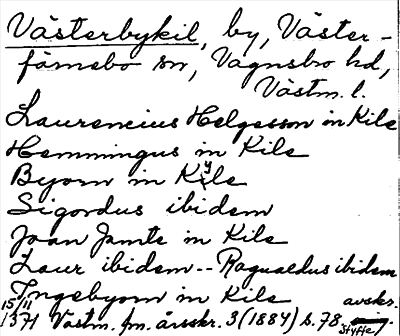 Västerbykil, by, Väster-
färnebo sn, Vagnsbro hd,
Västm. l.
Laurencius Helgesson in Kile
Hemmingus in Kile
Byorn in Kyle
Sigordus ibidem
Joan Jamte in Kile
Laur ibidem -- Ragualdus ibidem
Ingebyorn in Kile avskr.
15/11 1371 Västm. fm. årsskr. 3 (1884) s. 78. Styffe